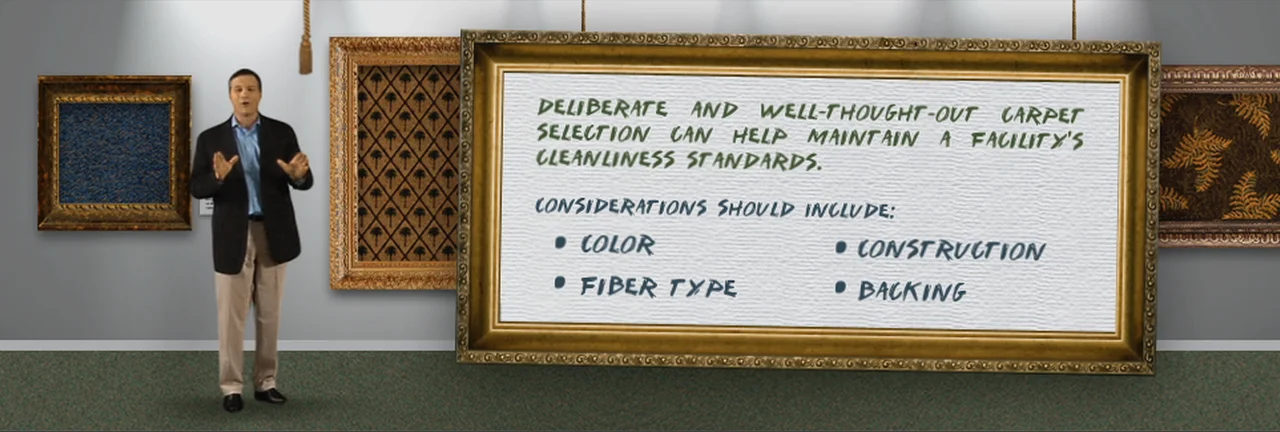 DELIBERATE AND WELL-THOUGHT-OUT CARPET
SELECTION CAN HELP MAINTAIN A FACILITY'S
CLEANLINESS STANDARDS.
CONSIDERATIONS SHOULD INCLUDE:
• COLOR
• CONSTRUCTION
• FIBER TYPE
• BACKING